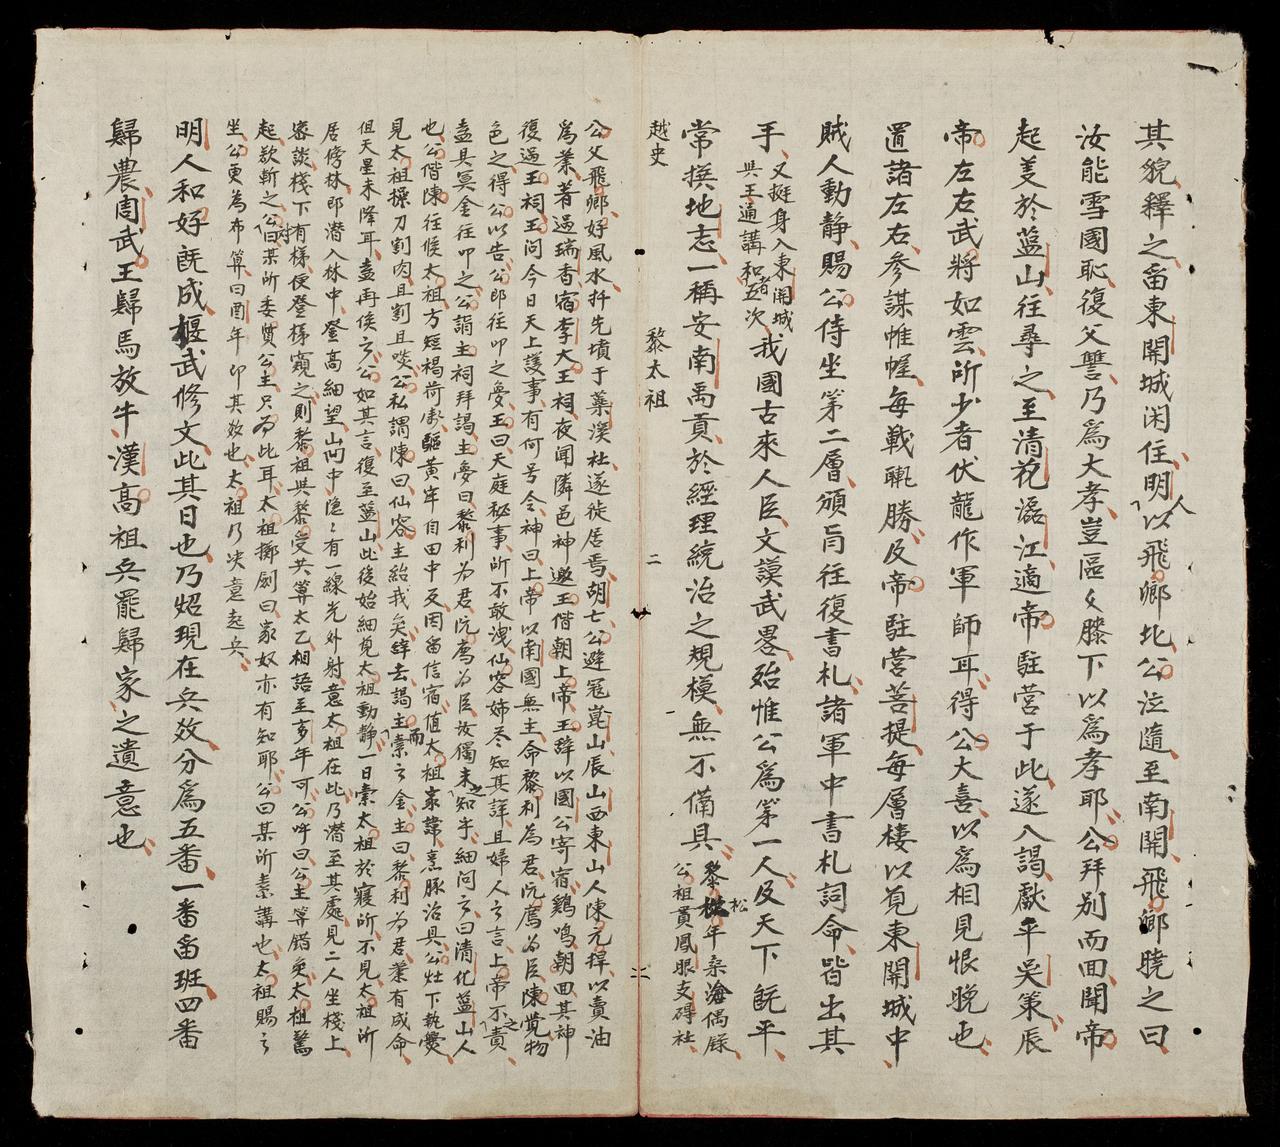 其貌釋之畱東關城閑住明人以飛卿北公泣隨至南關飛卿曉之曰
汝能雪國恥復父讐乃爲大孝豈區々膝下以爲孝耶公拜別而回聞帝
起羙於藍山往尋之至清花潞江適帝駐營于此遂入謁獻平吳策辰
帝左右武將如雲所少者伏龍作軍師耳得公大喜以爲相見恨晚也
置諸左右參謀帷幄每戰輒勝及帝駐營菩提每層樓以覓東關城中
賊人動靜賜公侍坐第二層頒旨往復書札諸軍中書札詞命皆出其
手又挺身入東關城與王通講和者五次我國古來人臣文謨武畧殆惟公爲第一人及天下旣平
常撰地志一稱安南禹貢於經理統治之規模無不備具黎松年桑滄偶錄公祖貫鳳眼支碍社
越史 黎太祖 二
公父飛卿好風水扦先墳于蘂溪社遂徙居焉胡亡公避冦崑山辰山西東山人陳元捍以賣油
爲業著過瑞香宿李大王祠夜聞隣邑神邀王偕朝上帝王辞以國公寄宿鷄鳴朝回其神
復過王祠王問今日天上議事有何号令神曰上帝以南國無主命黎利爲君阮廌爲臣陳覺物
色之得公以告公即往叩之夢王曰天庭秘事所不敢洩仙容姊尽知其詳且婦人之言上帝不之責
盍具冥金往叩之公詣主祠拜謁主夢曰黎利为君阮廌为臣汝獨未之知乎細問之曰清化藍山人
也公偕陳往候太祖方短褐荷鋤驅黃牢自田中反因畱信宿值太祖家諱烹豚治具公灶下執爨
見太祖操刀割肉且割且啖公私謂陳曰仙容主紿我矣辞去謁主而素之金主曰黎利为君業有成命
但天星未降耳盍再俟之公如其言復至藍山此後始細覓太祖動靜一日素太祖於寢所不見太祖所
居傍林即潜入林中登高細望山中隐々有一線光外射意太祖在此乃潜至其處見二人坐棧上
審談棧下有樣便登樣窺之則黎祖與黎受共算太乙相語至多年可公吽曰公主筭錯矣太祖驚
起欲斬之公曰某所委質公主只为此耳太祖擲劍曰家奴亦有知耶公曰某所素講也太祖賜之
坐公更为布算曰酉年卯其效也太祖乃决意起兵
明人和好旣成偃武修文此其日也乃炤現在兵效分爲五番一番畱班四番
歸農周武王歸馬放牛漢高祖兵罷歸家之遺意也